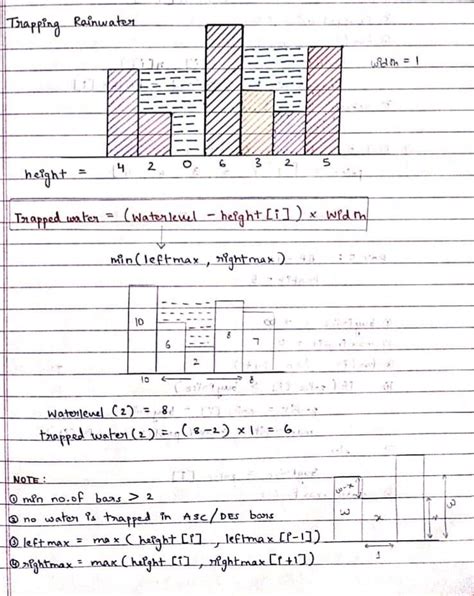 Trapping Rainwater
width = 1
height = 4 2 0 6 3 2 5
Trapped water = (waterlevel - height[i]) × width
min(leftmax, rightmax)
10 6 2 8 7
10 8
waterlevel (2) = 8
trapped water(2) = (8-2) × 1 = 6
NOTE:
① min no. of bars > 2
② no water is trapped in ASC/DES bars
③ leftmax = max(height[i], leftmax[i-1])
④ rightmax = max(height[i], rightmax[i+1])
w-x
w
x
w
x
1